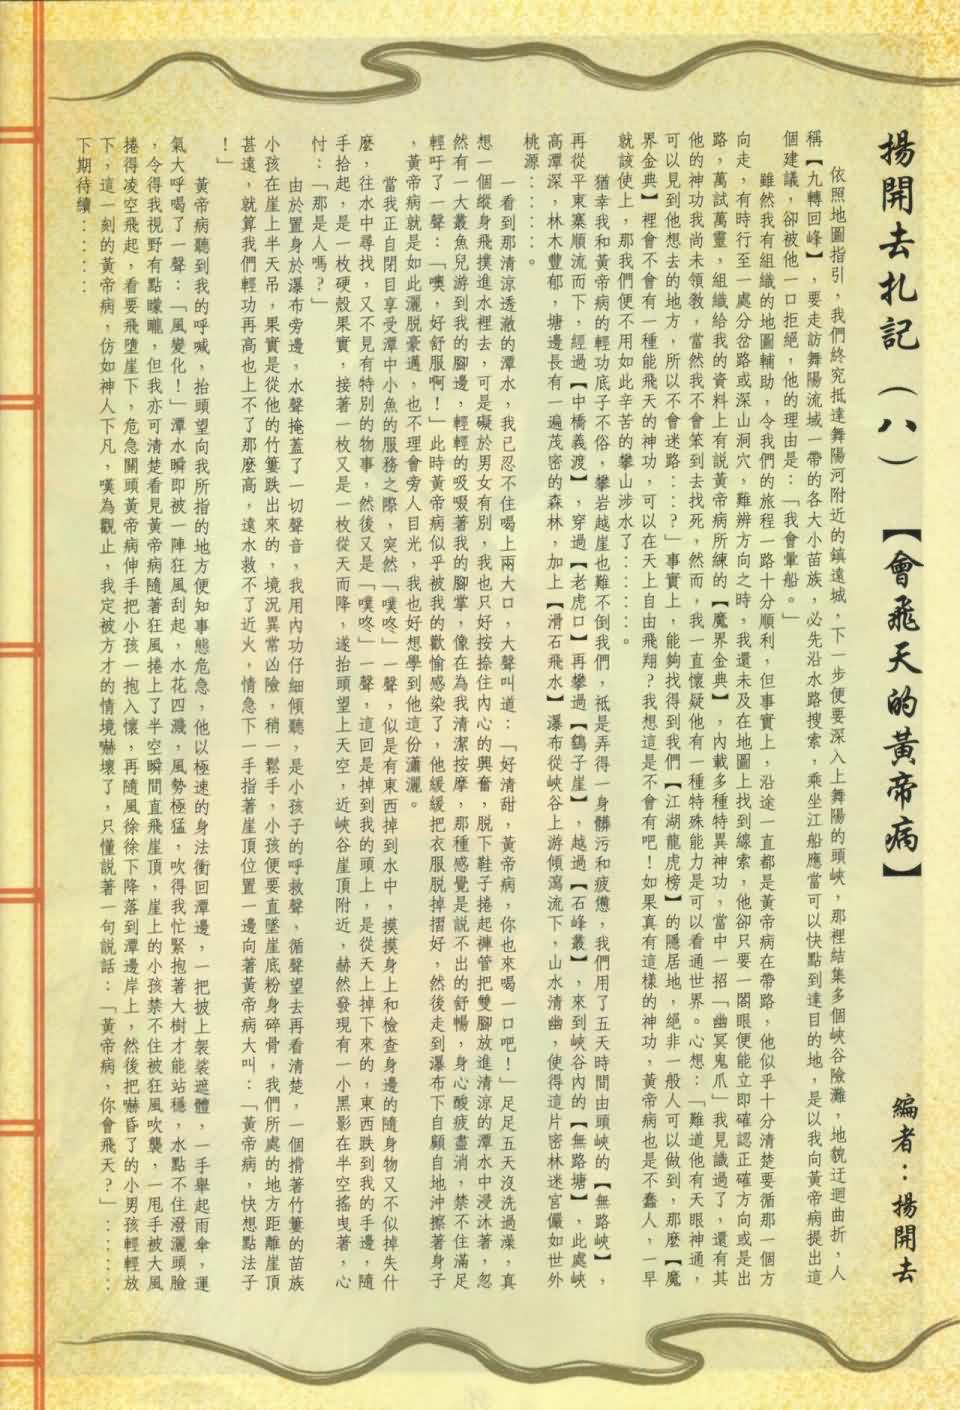 揚開去札記（八）【會飛天的黃帝病】
編者：揚開去
依照地圖指引，我們終究抵達舞陽河附近的鎮遠城，下一步便要深入上舞陽的頭峽，那裡結集多個峽谷險灘，地貌迂迴曲折，人
稱【九轉回峰】，要走訪舞陽流域一帶的各大小苗族，必先沿水路搜索，乘坐江船應當可以快點到達目的地，是以我向黃帝病提出這
個建議，卻被他一口拒絕，他的理由是：「我會暈船。」
雖然我有組織的地圖輔助，令我們的旅程一路十分順利，但事實上，沿途一直都是黃帝病在帶路，他似乎十分清楚要循那一個方
向走，有時行至一處分岔路或深山洞穴，難辨方向之時，我還未及在地圖上找到線索，他卻只要一閤眼便能立即確認正確方向或是出
路，萬試萬靈，組織給我的資料上有說黃帝病所練的【魔界金典】，內載多種特異神功，當中一招「幽冥鬼爪」我見識過了，還有其
他的神功我尚未領教，當然我不會笨到去找死，然而，我一直懷疑他有一種特殊能力是可以看通世界。心想：「難道他有天眼神通，
可以見到他想去的地方，所以不會迷路：：？」事實上，能夠找得到我們【江湖龍虎榜】的隱居地，絕非一般人可以做到，那麼【魔
界金典】裡會不會有一種能飛天的神功，可以在天上自由飛翔？我想這是不會有吧！如果真有這樣的神功，黃帝病也是不蠢人，一早
就該使上，那我們便不用如此辛苦的攀山涉水了：：：：：。
猶幸我和黃帝病的輕功底子不俗，攀岩越崖也難不倒我們，祇是弄得一身髒污和疲憊，我們用了五天時間由頭峽的【無路峽】，
再從平東寨順流而下，經過【中橋義渡】，穿過【老虎口】再攀過【鷂子崖】，越過【石峰叢】，來到峽谷內的【無路塘】，此處峽
高潭深，林木豐郁，塘邊長有一遍茂密的森林，加上【滑石飛水】瀑布從峽谷上游傾瀉流下，山水清幽，使得這片密林迷宮儼如世外
桃源：：：：：。
一看到那清涼透澈的潭水，我已忍不住喝上兩大口，大聲叫道：「好清甜，黃帝病，你也來喝一口吧！」足足五天沒洗過澡，真
想一個縱身飛撲進水裡去，可是礙於男女有別，我也只好按捺住內心的興奮，脫下鞋子捲起褲管把雙腳放進清涼的潭水中浸沐著，忽
然有一大叢魚兒游到我的腳邊，輕輕的吸啜著我的腳掌，像在為我清潔按摩，那種感覺是說不出的舒暢，身心酸疲盡消，禁不住滿足
輕吁了一聲：「噢，好舒服啊！」此時黃帝病似乎被我的歡愉感染了，他緩緩把衣服脫掉摺好，然後走到瀑布下自顧自地沖擦著身子
，黃帝病就是如此灑脫豪邁，也不理會旁人目光，我也好想學到他這份瀟灑。
當我正自閉目享受潭中小魚的服務之際，突然「噗咚」一聲，似是有東西掉到水中，摸摸身上和檢查身邊的隨身物又不似掉失什
麼，往水中尋找，又不見有特別的物事，然後又是「噗咚」一聲，這回是掉到我的頭上，是從天上掉下來的，東西跌到我的手邊，隨
手拾起，是一枚硬殼果實，接著一枚又是一枚從天而降，遂抬頭望上天空，近峽谷崖頂附近，赫然發現有一小黑影在半空搖曳著，心
忖：「那是人嗎？」
由於置身於瀑布旁邊，水聲掩蓋了一切聲音，我用內功仔細傾聽，是小孩子的呼救聲，循聲望去再看清楚，一個揹著竹簍的苗族
小孩在崖上半天吊，果實是從他的竹簍跌出來的，境況異常凶險，稍一鬆手，小孩便要直墜崖底粉身碎骨，我們所處的地方距離崖頂
甚遠，就算我們輕功再高也上不了那麼高，遠水救不了近火，情急下一手指著崖頂位置一邊向著黃帝病大叫：「黃帝病，快想點法子
！」
黃帝病聽到我的呼喊，抬頭望向我所指的地方便知事態危急，他以極速的身法衝回潭邊，一把披上袈裟遮體，一手舉起雨傘，運
氣大呼喝了一聲：「風變化！」潭水瞬即被一陣狂風刮起，水花四濺，風勢極猛，吹得我忙緊抱著大樹才能站穩，水點不住潑灑頭臉
，令得我視野有點矇矓，但我亦可清楚看見黃帝病隨著狂風捲上了半空瞬間直飛崖頂，崖上的小孩禁不住被狂風吹襲，一甩手被大風
捲得凌空飛起，看要飛墮崖下，危急關頭黃帝病伸手把小孩一抱入懷，再隨風徐徐下降落到潭邊岸上，然後把嚇昏了的小男孩輕輕放
下，這一刻的黃帝病，仿如神人下凡，嘆為觀止，我定被方才的情境嚇壞了，只懂說著一句說話：「黃帝病，你會飛天？」：：：：：
下期待續：：：：：